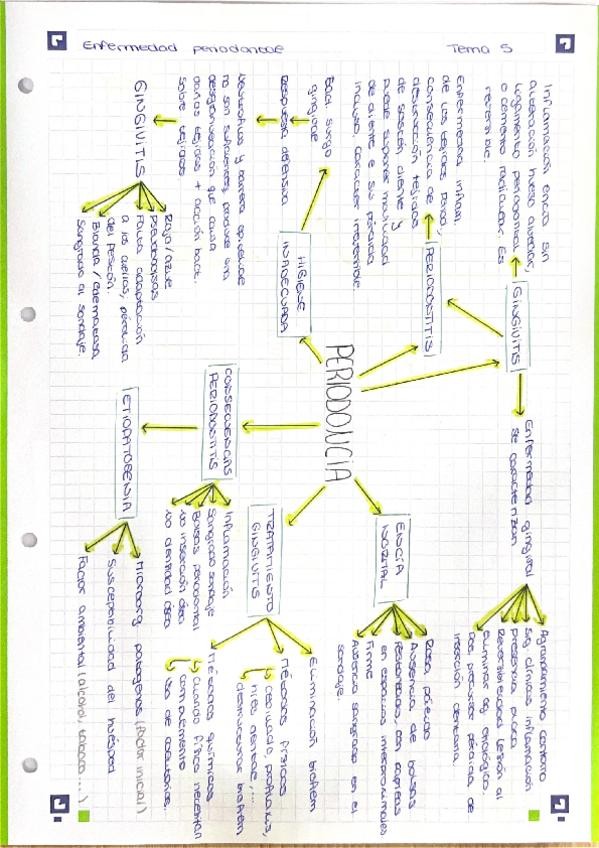 Enfermedad periodontal
Tema 5
PERIODONCIA
GINGIVITIS
Inflamación encía sin
alteración hueso alveolar,
ligamento periodontal
o cemento radicular. Es
reversible.
Enfermedad gingival
se caracterizan
Agrandamiento contorno
Sig. clínicos inflamación
presencia placa
Reversibilidad lesión al
eliminar ag. etiológico.
Dos precursor pérdida de
inserción dentaria.
PERIODONTITIS
Enfermedad inflam.
de los tejidos perio,
consecuencia de
destrucción tejidos
de sostén diente y
puede suponer movilidad
de diente e sus pérdida
incluso. Caracter irreversible.
ENCÍA
NORMAL
Rosa, pálido
Ausencia de bolsas
Festoneada, con papilas
en espacios interproximales
Firme
Ausencia sangrado en el
sondaje.
HIGIENE
INADECUADA
Bact surgo
gingival
Respuesta defensiva
Neutrófilos y barrera epitelial
no son suficientes, produce una
desorganización que causa
daños tejidos + acción bact.
sobre tejidos
GINGIVITIS
Rojo/azul
Pseudobolsas
Falta adaptación
a los dientes, pérdida
del festón.
Blanda / edematosa
Sangrado al sondaje.
TRATAMIENTO
GINGIVITIS
Eliminación biofilm
Métodos físicos
cepillado, profilaxis,
hilo dental,....
desestructurar biofilm
Métodos químicos
Cuando físico necesitan
complemento
Uso de colutorios.
CONSECUENCIAS
PERIODONTITIS
Inflamación
Sangrado sondaje
Bolsas periodontal
No inserción ósea
No densidad ósea
ETIOPATOGENIA
Microorg patógenos (factor inicial)
Susceptibilidad del huésped
Factor ambiental (alcohol, tabaco...)